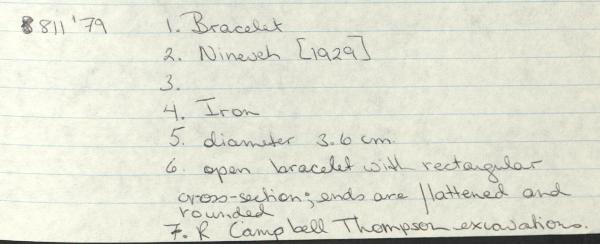 8811'79 1. Bracelet
2. Nineveh [1929]
3.
4. Iron
5. diameter 3.6 cm.
6. open bracelet with rectangular
cross-section; ends are flattened and
rounded
7. R Campbell Thompson excavations.